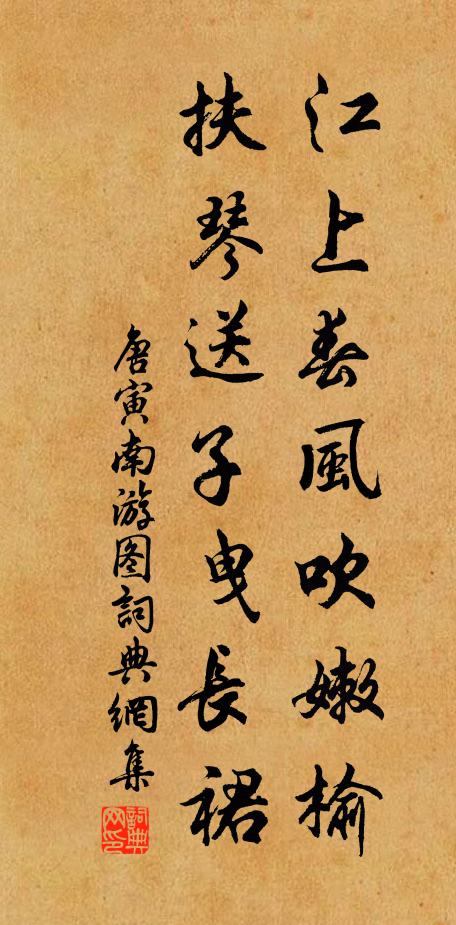 江上春風吹嫩榆
扶琴送子曳長裙
唐寅南游图詞典網集
詞典网印